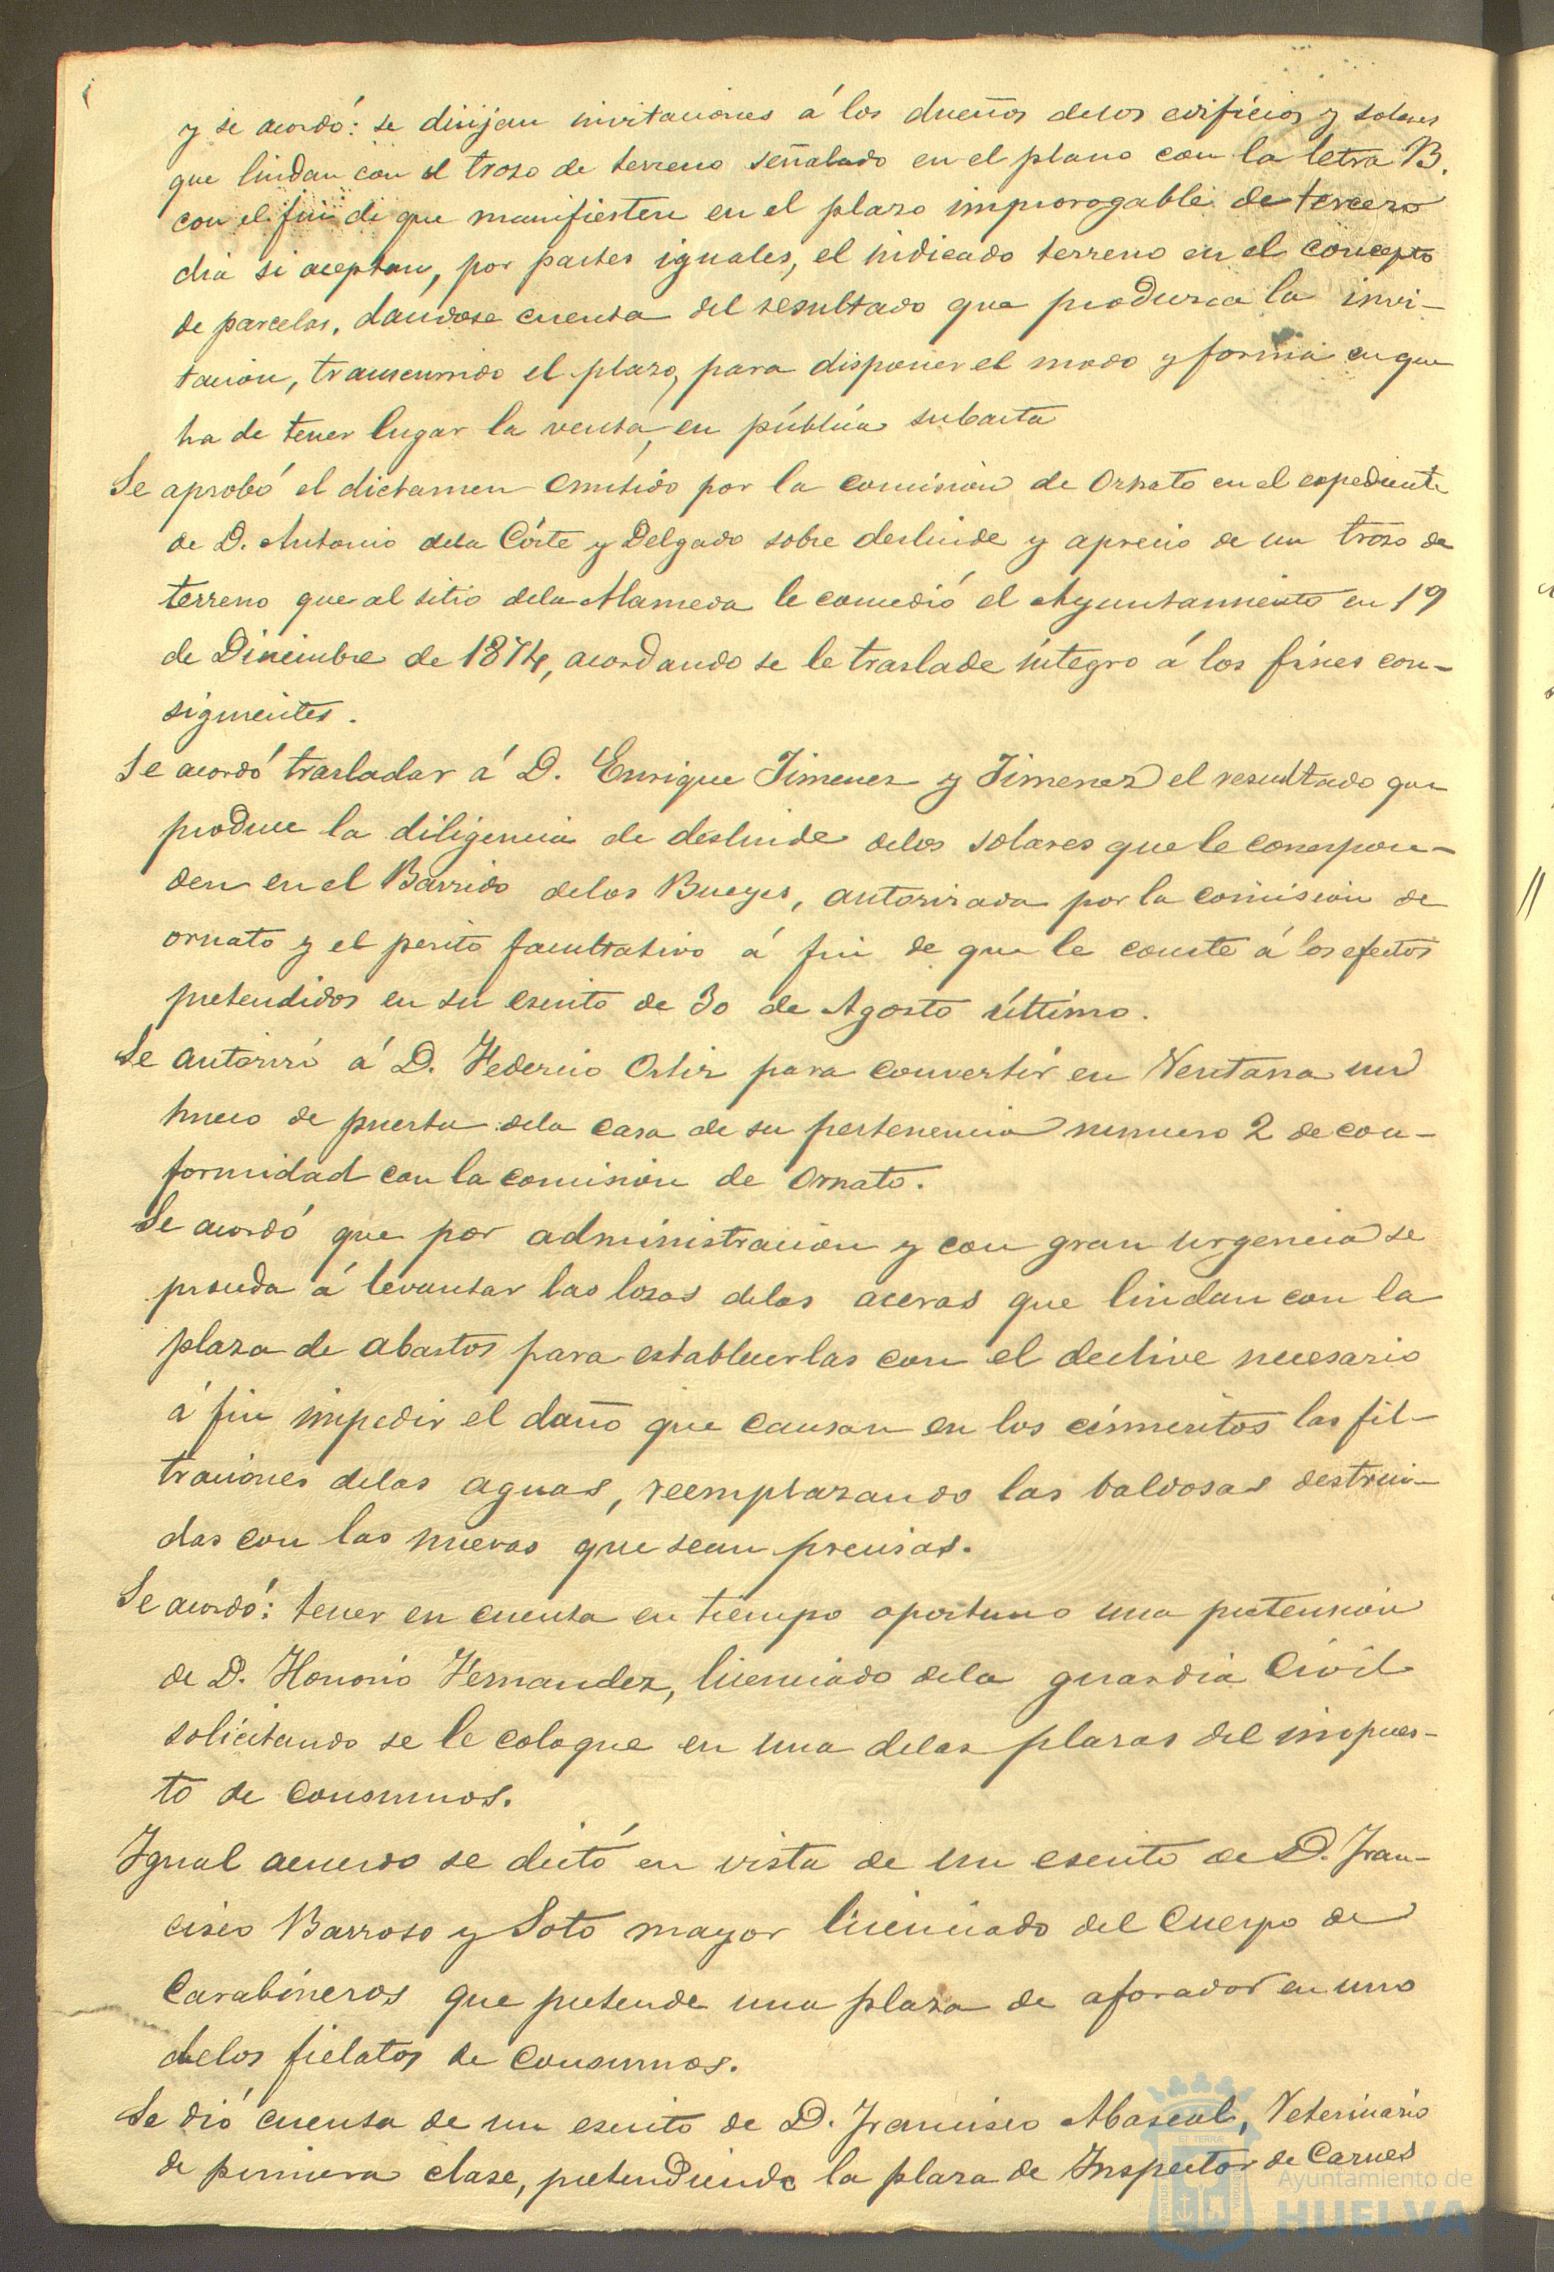 y se acordó: se dirijan invitaciones á los dueños delos edificios y solares
que lindan con el trozo de terreno señalado en el plano con la letra B.
con el fin de que manifiesten en el plazo improrogable de tercero
dia si aceptan, por partes iguales, el indicado terreno en el concepto
de parcelas, dandose cuenta del resultado que produzca la invi-
tacion, transcurrido el plazo, para disponer el modo y forma en que
ha de tener lugar la venta, en pública subasta
Se aprobó el dictamen emitido por la comision de Ornato en el expediente
de D. Antonio dela Córte y Delgado sobre deslinde y aprecio de un trozo de
terreno que al sitio dela Alameda le concedió el Ayuntamiento en 19
de Diciembre de 1874, acordando se le traslade integro á los fines con-
siguientes.
Se acordó trasladar á D. Enrique Jimenez y Jimenez el resultado que
produce la diligencia de deslinde delos solares que le correspon-
den en el Barrido delos Bueyes, autorizada por la comision de
ornato y el perito facultativo á fin de que le conste á los efectos
pretendidos en su escrito de 30 de Agosto último.
Se autorizó á D. Federico Ortiz para convertir en Ventana un
hueco de puerta dela casa de su pertenencia numero 2 de con-
formidad con la comision de Ornato.
Se acordó que por administracion y con gran urgencia se
proceda á levantar las losas delas aceras que lindan con la
plaza de abastos para establecerlas con el declive necesario
á fin impedir el daño que causan en los cimientos las fil-
traciones delas aguas, reemplazando las baldosas destrui-
das con las nuevas que sean precisas.
Se acordó: tener en cuenta en tiempo oportuno una pretension
de D. Honorio Fernandez, licenciado dela guardia Civil
solicitando se le coloque en una delas plazas del impues-
to de Consumos.
Igual acuerdo se dictó en vista de un escrito de D. Fran-
cisco Barroso y Soto mayor licenciado del Cuerpo de
Carabineros que pretende una plaza de aforador en uno
delos fielatos de Consumos.
Se dió cuenta de un escrito de D. Francisco Abascal, Veterinario
de primera clase, pretendiendo la plaza de Inspector de Carnes
Ayuntamiento de
HUELVA